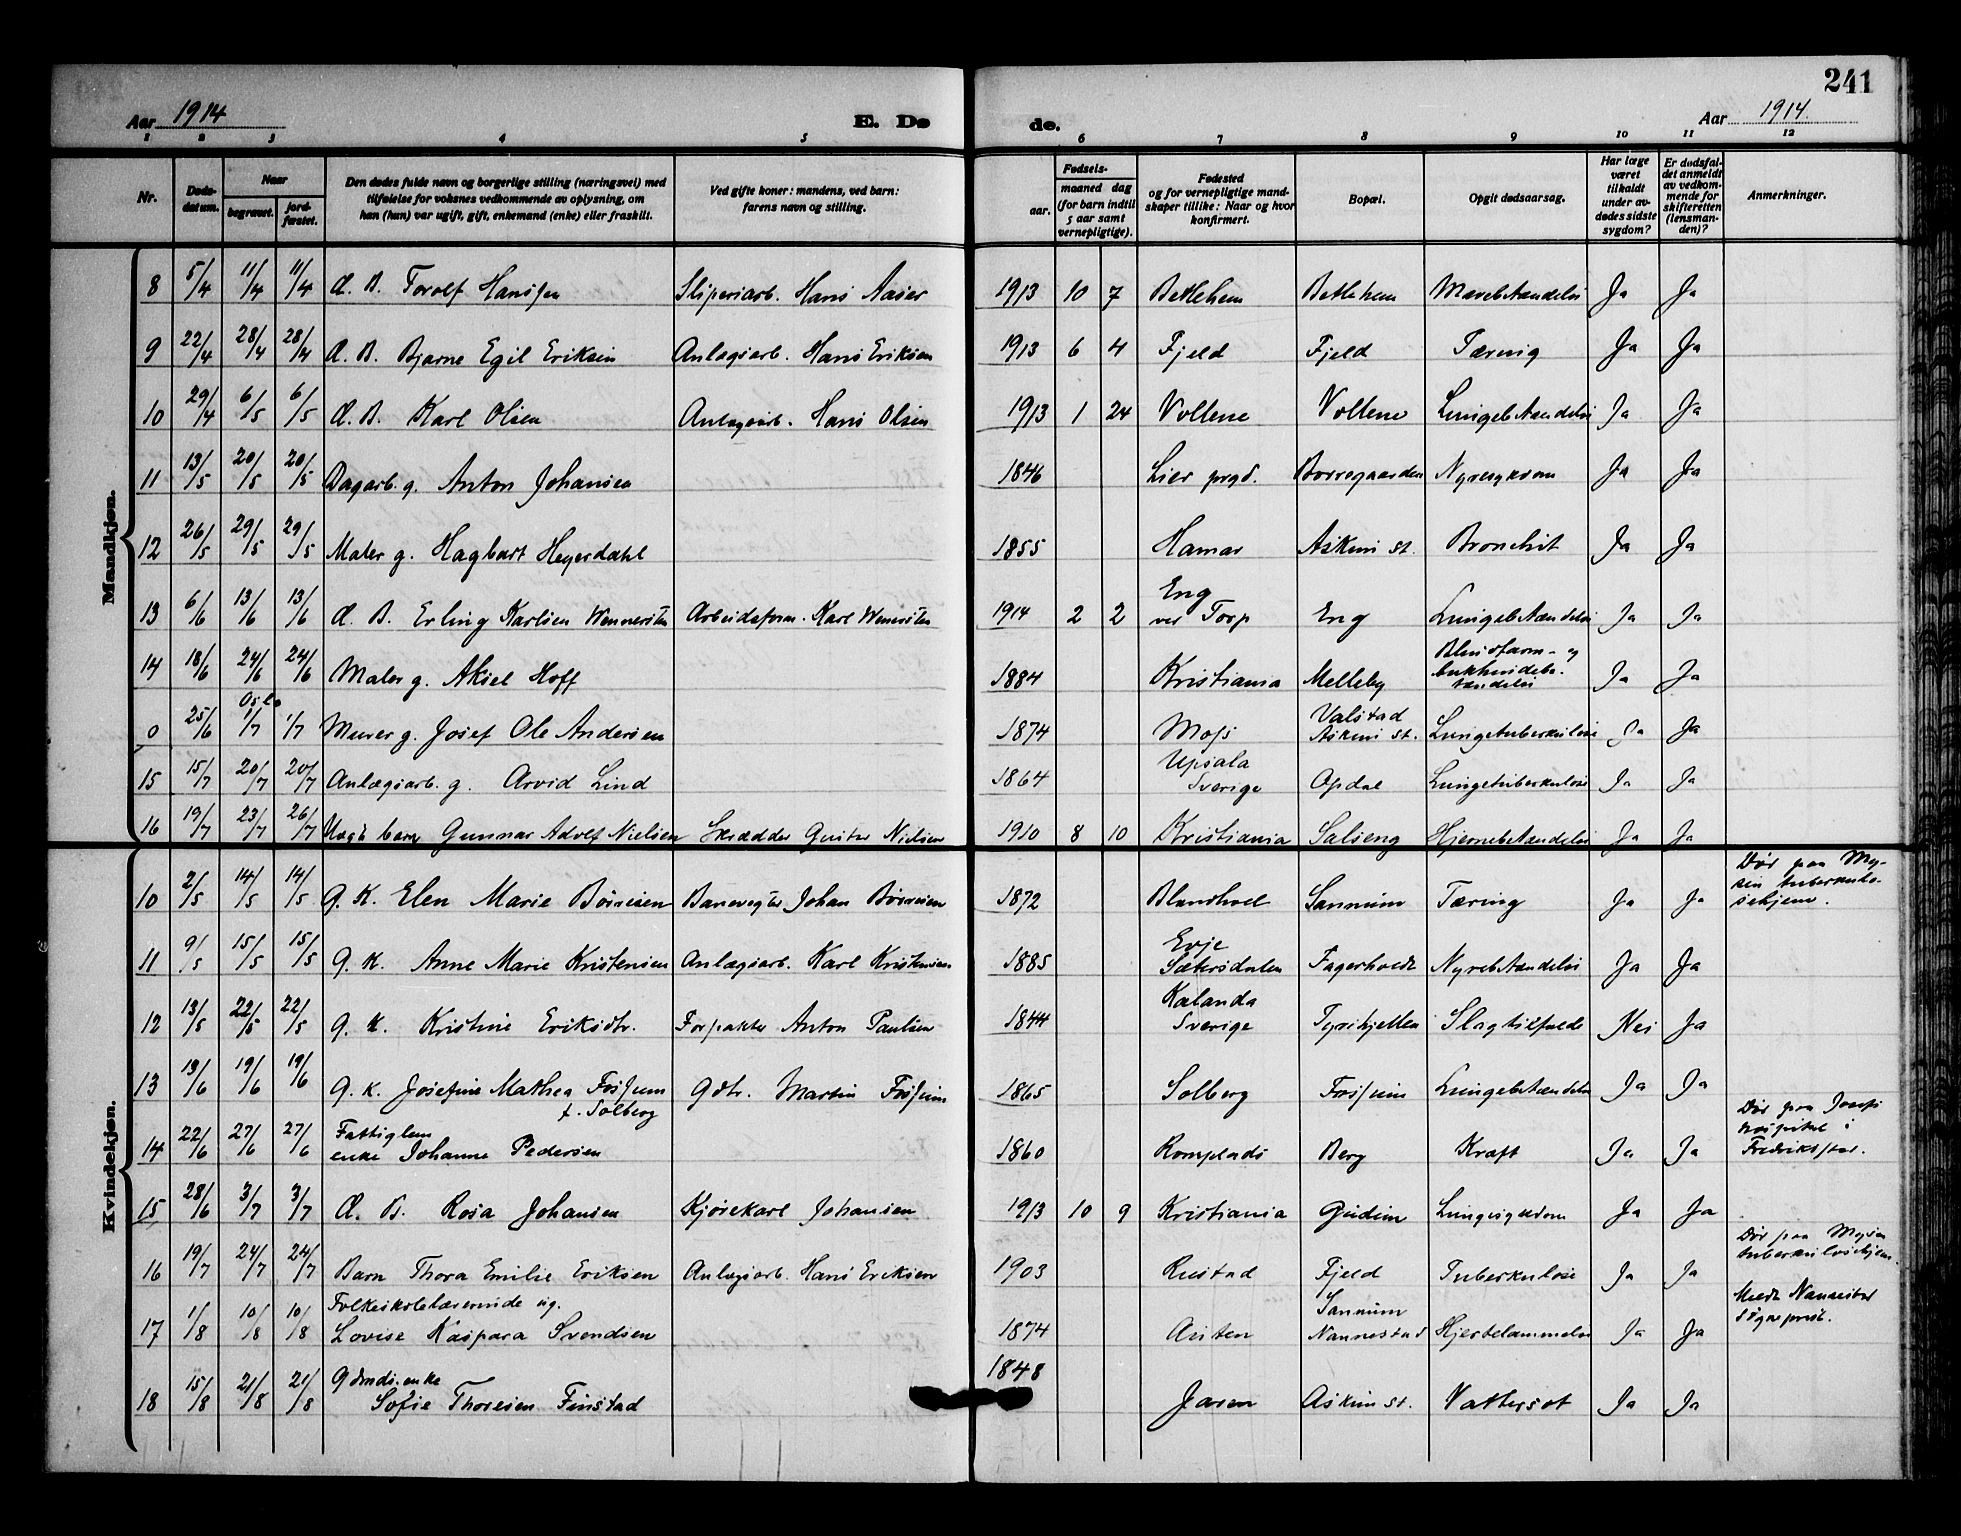 241
Aar 1914
E. Dø
de.
Aar 1914.
1 2 3 4 5 6 7 8 9 10 11 12
Nr.
Døds-
datum.
Naar
begravet.
jord-
fæstet.
Den dødes fulde navn og borgerlige stilling (næringsvei) med
tilføielse for voksnes vedkommende av oplysning, om
han (hun) var ugift, gift, enkemand (enke) eller fraskilt.
Ved gifte koner: mandens, ved barn:
farens navn og stilling.
Fødsels-
aar.
maaned dag
(for barn indtil
5 aar samt
vernepligtige).
Fødested
og for vernepligtige mand-
skaper tillike: Naar og hvor
konfirmert.
Bopæl.
Opgit dødsaarsag.
Har læge
været
tilkaldt
under av-
dødes sidste
sygdom?
Er dødsfal-
det anmeldt
av vedkom-
mende for
skifteretten
(lensman-
den)?
Anmerkninger.
Mandkjøn.
8 5/4 11/4 11/4 d. B. Torolf Hansen Sliperiarb. Hans Aaser 1913 10 7 Betlehem Betlehem Mavebetændelse Ja Ja
9 22/4 28/4 28/4 d. B. Bjarne Egil Eriksen Anlægsarb. Hans Eriksen 1913 6 4 Fjeld Fjeld Tæring Ja Ja
10 29/4 6/5 6/5 d. B. Karl Olsen Anlægsarb. Hans Olsen 1913 1 24 Voltene Voltene Lungebetændelse Ja Ja
11 13/5 20/5 20/5 Dagarb. g. Anton Johansen 1846 Lier prgd. Borregaarden Nyresykdom Ja Ja
12 26/5 29/5 29/5 Maler g. Hagbart Heyerdahl 1855 Hamar Askim st. Bronchit Ja Ja
13 6/6 13/6 13/6 d. B. Erling Karlsen Wennersten Arbeidsform. Karl Wennersten 1914 2 2 Eng
ved Torp Eng Lungebetændelse Ja Ja
14 18/6 24/6 24/6 Maler g. Aksel Hoff 1884 Kristiania Melleby Blindtarm- og
bukhindebe-
tændelse Ja Ja
Oslo
0 25/6 1/7 1/7 Murer g. Josef Ole Andersen 1874 Moss Valstad
Askim st. Lungetuberkulose Ja Ja
15 15/7 20/7 20/7 Anlægsarb. g. Arvid Lind 1864 Upsala
Sverige Opdal Lungetuberkulose Ja Ja
16 19/7 23/7 26/7 Uægte barn Gunnar Adolf Nielsen Skrædder Gustav Nielsen 1910 8 10 Kristiania Salseng Hjernebetændelse Ja Ja
Kvindekjøn.
10 2/5 14/5 14/5 G. K. Elen Marie Børresen Banevogter Johan Børresen 1872 Blandhoel Sannum Tæring Ja Ja Død paa My-
sen tuberkulo-
sehjem.
11 9/5 15/5 15/5 G. K. Anne Marie Kristensen Anlægsarb. Karl Kristensen 1885 Evje
Sætersdalen Fagerholdt Nyrebetændelse Ja Ja
12 13/5 22/5 22/5 G. K. Kristine Eriksdtr. Forpakter Anton Paulsen 1844 Kalanda
Sverige Tyrihjellen Slagtilfælde Nei Ja
13 13/6 19/6 19/6 G. K. Josefine Mathea Fossum
f. Solberg Gbr. Martin Fossum 1865 Solberg Fossum Lungebetændelse Ja Ja
14 22/6 27/6 27/6 Fattiglem
enke Johanne Pedersen 1860 Romplads Berg Kræft Ja Ja Død paa Josefs
hospital i
Fredrikstad.
15 28/6 3/7 3/7 d. B. Rosa Johansen Kjørekarl Johansen 1913 10 9 Kristiania Gudim Lungesykdom Ja Ja
16 19/7 24/7 24/7 Barn Thora Emilie Eriksen Anlægsarb. Hans Eriksen 1903 Rustad Fjeld Tuberkulose Ja Ja Død paa Mysen
tuberkulosehjem.
17 1/8 10/8 10/8 Folkeskolelærerinde ug.
Lovise Kaspara Svendsen 1874 Asten Sannum
Nannestad Hjertelammelse Ja Ja Meldt Nannestad
sogneprest.
18 15/8 21/8 21/8 Gdmds. enke
Sofie Thoresen Finstad 1848 Jaren Askim st. Vattersot Ja Ja